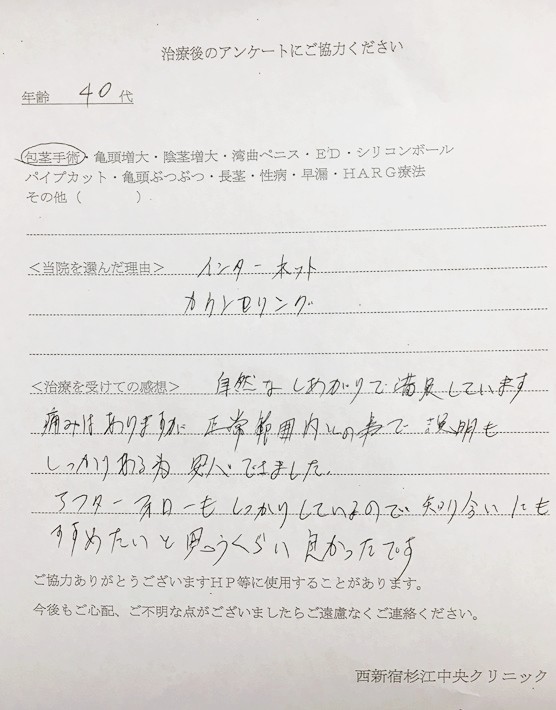 治療後のアンケートにご協力ください
年齢 40 代
包茎手術・亀頭増大・陰茎増大・湾曲ペニス・ED・シリコンボール
パイプカット・亀頭ぶつぶつ・長茎・性病・早漏・HARG療法
その他（　　　）
＜当院を選んだ理由＞ インターネット
カウンセリング
＜治療を受けての感想＞ 自然なしあがりで満足しています
痛みはありますが正常範囲内との事で説明も
しっかりある為 安心できました。
アフターフォローもしっかりしているので知り合いにも
すすめたいと思うくらい良かったです
ご協力ありがとうございますHP等に使用することがあります。
今後もご心配、ご不明な点がございましたらご遠慮なくご連絡ください。
西新宿杉江中央クリニック